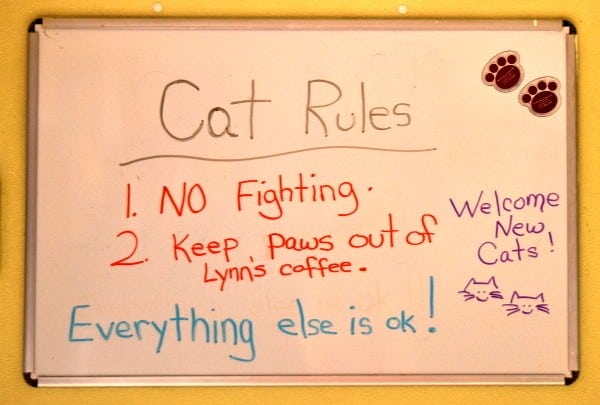 Cat Rules
1. NO Fighting.
2. Keep paws out of
Lynn's coffee.
Everything else is ok!
Welcome
New
Cats!